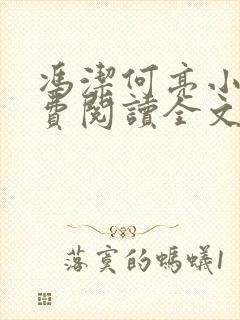 馮潔何亮小
費閱讀全文
落寞的螞蟻1